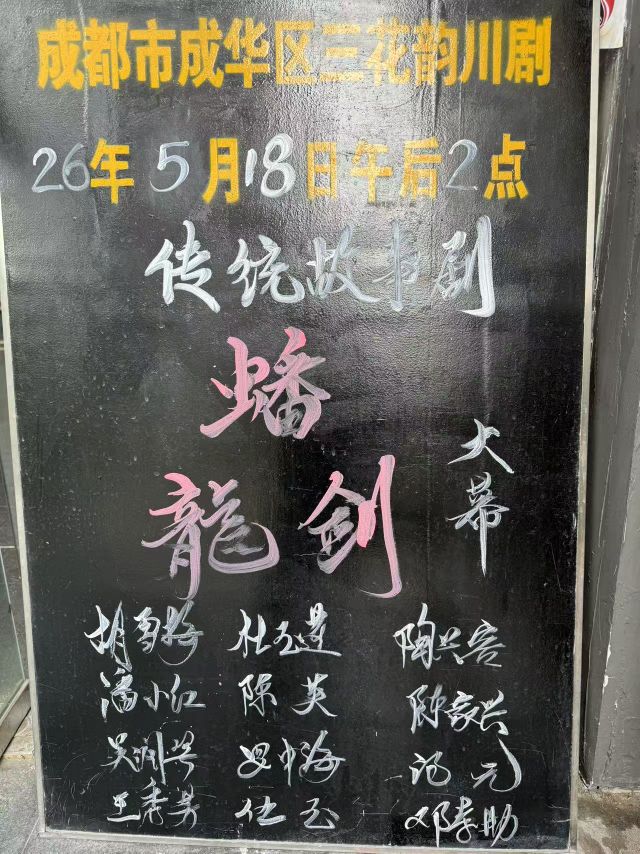 成都市成华区三花韵川剧
26年5月18日午后2点
传统故事剧
蟠
龍剑
大幕
胡雪梅 杜 陶兴容
潘小红 陈英 陈家兴
吴 海 元
王秀芳 伍玉 邓孝助